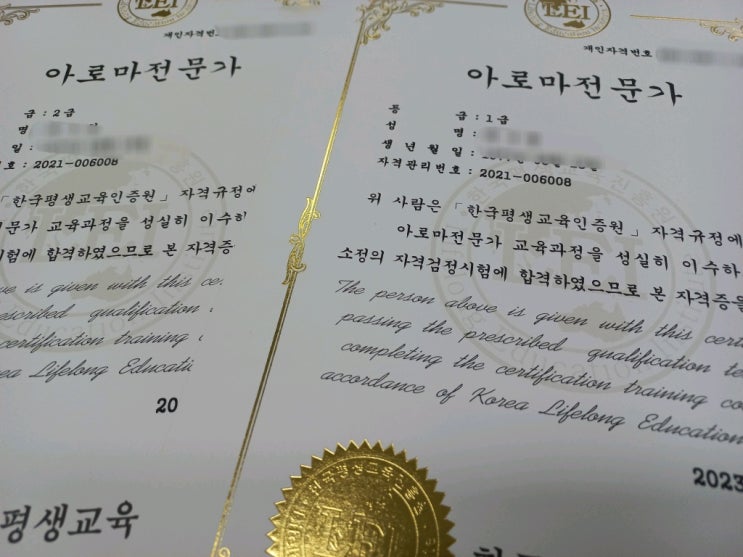 LEI
재인자격번호
아로마전문가
급 : 2급
명
호 : 2021-006008
「한국평생교육인증원」 자격규정에
문가 교육과정을 성실히 이수하
시험에 합격하였으므로 본 자격증
ve is given with this ce
escribed qualification
certification training
ea Lifelong Educati
20
평생교육
LEI
재인자격번호
아로마전문가
등 급 : 1급
성 명 :
생 년 월 일 :
자격관리번호 : 2021-006008
위 사람은 「한국평생교육인증원」 자격규정에
아로마전문가 교육과정을 성실히 이수하
소정의 자격검정시험에 합격하였으므로 본 자격증을
The person above is given with this cert
passing the prescribed qualification te
completing the certification training co
accordance of Korea Lifelong Education
2023